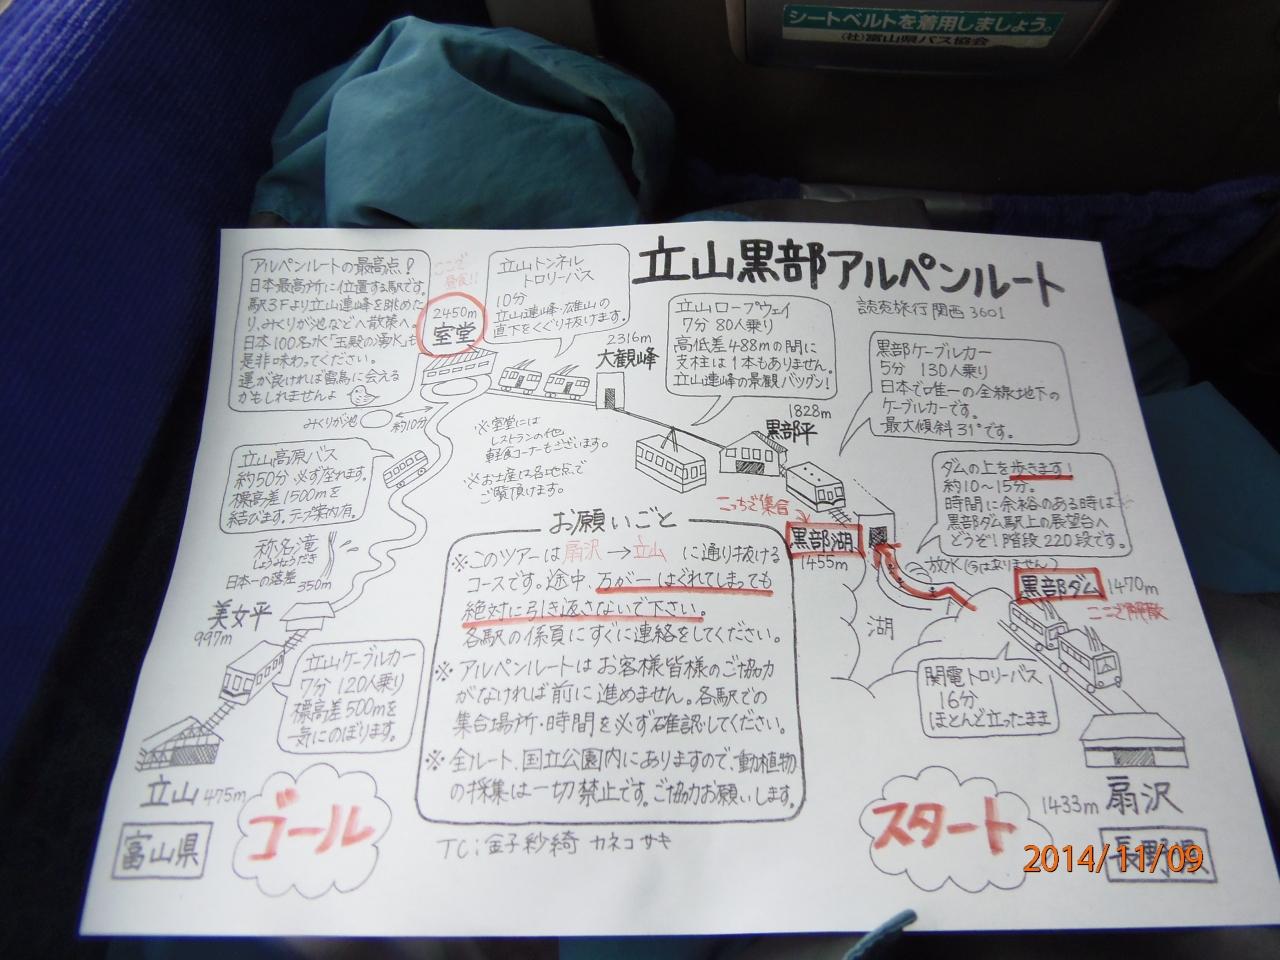 シートベルトを着用しましょう。
(社)富山県バス協会
立山黒部アルペンルート
読売旅行関西3601
アルペンルートの最高点!
日本最高所に位置する駅です。
駅3Fより立山連峰を眺めた
り、みくりが池などへ散策へ。
日本100名水「玉殿の湧水」も
是非味わってください。
運が良ければ雷鳥に会える
かもしれませんよ
ここで
昼食!!
2450m
室堂
みくりが池
約10分
立山トンネル
トロリーバス
10分
立山連峰・雄山の
直下をくぐり抜けます。
2316m
大観峰
立山ロープウェイ
7分 80人乗り
高低差488mの間に
支柱は1本もありません。
立山連峰の景観バツグン!
1828m
黒部平
黒部ケーブルカー
5分 130人乗り
日本で唯一の全線地下の
ケーブルカーです。
最大傾斜31°です。
※室堂には
レストランの他、
軽食コーナーもございます。
※お土産は各地点で
ご覧頂けます。
立山高原バス
約50分 必ず座れます。
標高差1500mを
結びます。テープ案内有。
称名滝
しょうみょうだき
日本一の落差
350m
美女平
997m
立山ケーブルカー
7分 120人乗り
標高差500mを
一気にのぼります。
立山 475m
富山県
ゴール
こっちで集合
黒部湖
1455m
ダムの上を歩きます!
約10〜15分。
時間に余裕のある時は
黒部ダム駅上の展望台へ
どうぞ!階段220段です。
放水(今はありません)
黒部ダム 1470m
ここで解散
湖
関電トロリーバス
16分
ほとんど立ったまま
お願いごと
※このツアーは扇沢→立山 に通り抜ける
コースです。途中、万が一はぐれてしまっても
絶対に引き返さないで下さい。
各駅の係員にすぐに連絡をしてください。
※アルペンルートはお客様皆様のご協力
がなければ前に進めません。各駅での
集合場所・時間を必ず確認してください。
※全ルート、国立公園内にありますので、動植物
の採集は一切禁止です。ご協力お願いします。
TC:金子紗綺 カネコサキ
スタート
1433m 扇沢
長野県
2014/11/09